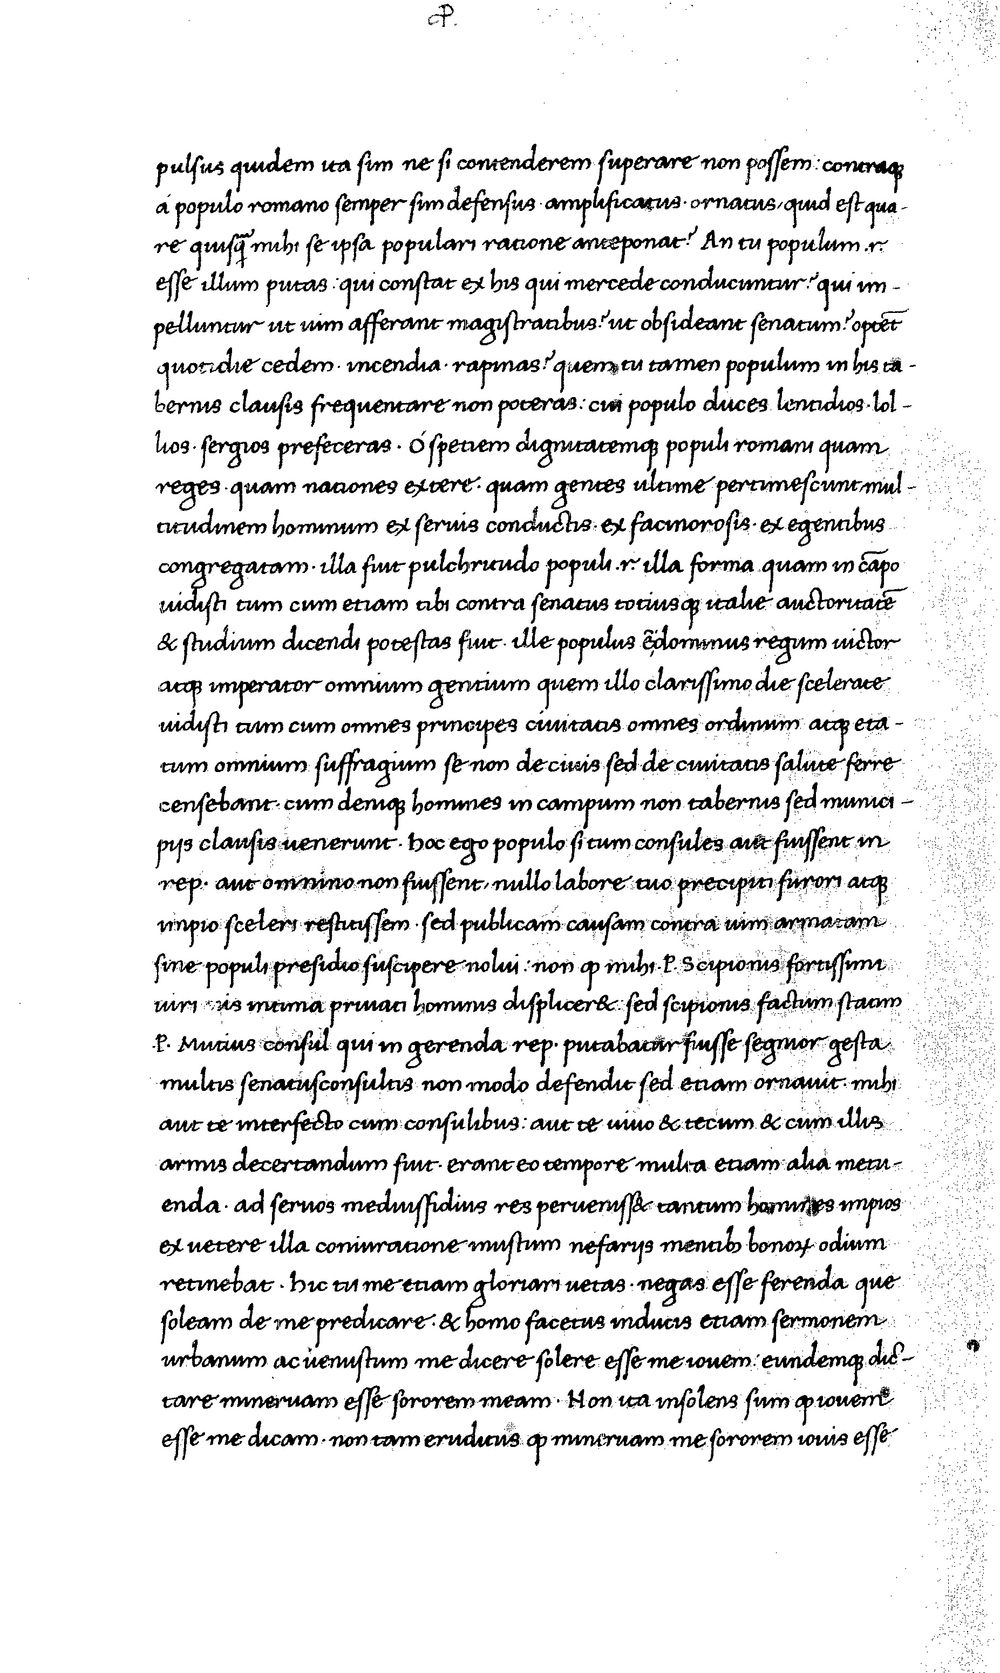 cP.
pulsus quidem ita sim ne si contenderem superare non possem: contraq;
á populo romano semper sim defensus· amplificatus· ornatus, quid est qua-
re quisq̄ mihi se ipsa populari ratione anteponat? An tu populum .r.
esse illum putas: qui constat ex his qui mercede conducuntur? qui im-
pelluntur ut uim afferant magistratibus? ut obsideant senatum? optēt
quotidie cedem· incendia· rapinas? quem tu tamen populum in his ta-
bernis clausis frequentare non poteras: cui populo duces lentidios· lol-
lios· sergios prefeceras· Ó spetiem dignitatemq; populi romani quam
reges· quam nationes extere· quam gentes ultime pertimescunt mul-
titudinem hominum ex seruis conductis· ex facinorosis· ex egentibus
congregatam· illa fuit pulchritudo populi .r. illa forma quam in cāpo
uidisti tum cum etiam tibi contra senatus totiusq; italie auctoritatē
& studium dicendi potestas fuit· ille populus ē dominus regum uictor
atq; imperator omnium gentium quem illo clarissimo die scelerate
uidisti tum cum omnes principes ciuitatis omnes ordinum atq; eta-
tum omnium suffragium se non de ciuis sed de ciuitatis salute ferre
censebant· cum deniq; homines in campum non tabernis sed munici-
pijs clausis uenerunt· hoc ego populo si tum consules aut fuissent in
rep· aut omnino non fuissent, nullo labore tuo precipiti furori atq;
impio sceleri restitissem· sed publicam causam contra uim armatam
sine populi presidio suscipere nolui: non q mihi .P. Scipionis fortissimi
uiri uis intima priuati hominis displicer&: sed scipionis factum statim
.P. Mutius consul qui in gerenda rep· putabatur fuisse segnior gesta
multis senatusconsultis non modo defendit sed etiam ornauit· mihi
aut te interfecto cum consulibus: aut te uiuo & tecum & cum illis
armis decertandum fuit· erant eo tempore multa etiam alia metu-
enda· ad seruos mediussfidius res perueniss& tantum homines impios
ex uetere illa coniuratione inustum nefarijs mentib; bonoꝝ odium
retinebat· hic tu me etiam gloriari uetas· negas esse ferenda que
soleam de me predicare: & homo facetus inducis etiam sermonem
urbanum ac uenustum me dicere solere esse me iouem: eundemq; dic-
tare mineruam esse sororem meam· Non ita insolens sum q iouem
esse me dicam· non tam eruditus q mineruam me sororem iouis esse